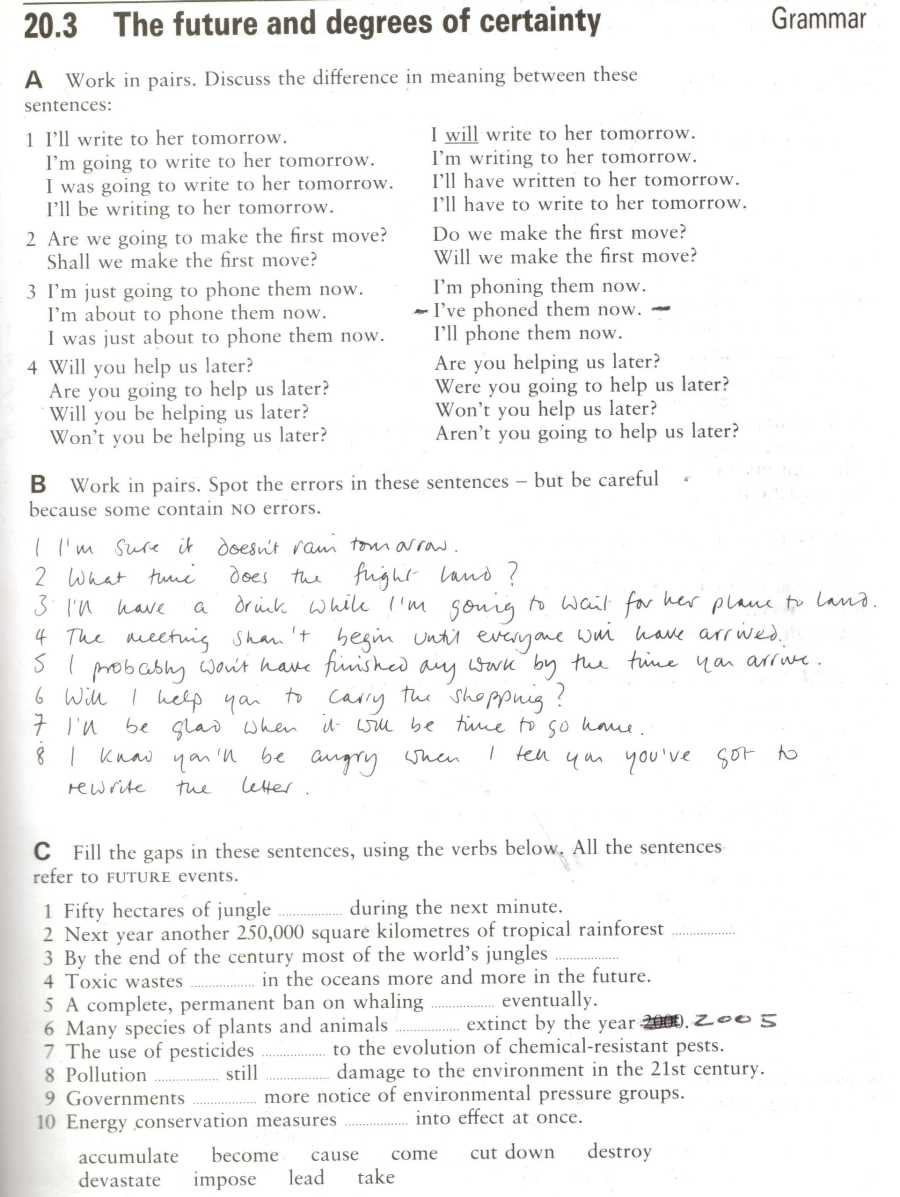 20.3 The future and degrees of certainty Grammar
A Work in pairs. Discuss the difference in meaning between these
sentences:
1 I'll write to her tomorrow. I will write to her tomorrow.
I'm going to write to her tomorrow. I'm writing to her tomorrow.
I was going to write to her tomorrow. I'll have written to her tomorrow.
I'll be writing to her tomorrow. I'll have to write to her tomorrow.
2 Are we going to make the first move? Do we make the first move?
Shall we make the first move? Will we make the first move?
3 I'm just going to phone them now. I'm phoning them now.
I'm about to phone them now. – I've phoned them now. –
I was just about to phone them now. I'll phone them now.
4 Will you help us later? Are you helping us later?
Are you going to help us later? Were you going to help us later?
Will you be helping us later? Won't you help us later?
Won't you be helping us later? Aren't you going to help us later?
B Work in pairs. Spot the errors in these sentences – but be careful
because some contain NO errors.
1 I'm sure it doesn't rain tomorrow.
2 What time does the flight land?
3 I'll have a drink while I'm going to wait for her plane to land.
4 The meeting shan't begin until everyone will have arrived.
5 I probably won't have finished my work by the time you arrive.
6 Will I help you to carry the shopping?
7 I'll be glad when it will be time to go home.
8 I know you'll be angry when I tell you you've got to
rewrite the letter.
C Fill the gaps in these sentences, using the verbs below. All the sentences
refer to FUTURE events.
1 Fifty hectares of jungle .................. during the next minute.
2 Next year another 250,000 square kilometres of tropical rainforest ..................
3 By the end of the century most of the world's jungles ..................
4 Toxic wastes .................. in the oceans more and more in the future.
5 A complete, permanent ban on whaling .................. eventually.
6 Many species of plants and animals .................. extinct by the year 2000. 2005
7 The use of pesticides .................. to the evolution of chemical-resistant pests.
8 Pollution .................. still .................. damage to the environment in the 21st century.
9 Governments .................. more notice of environmental pressure groups.
10 Energy conservation measures .................. into effect at once.
accumulate become cause come cut down destroy
devastate impose lead take